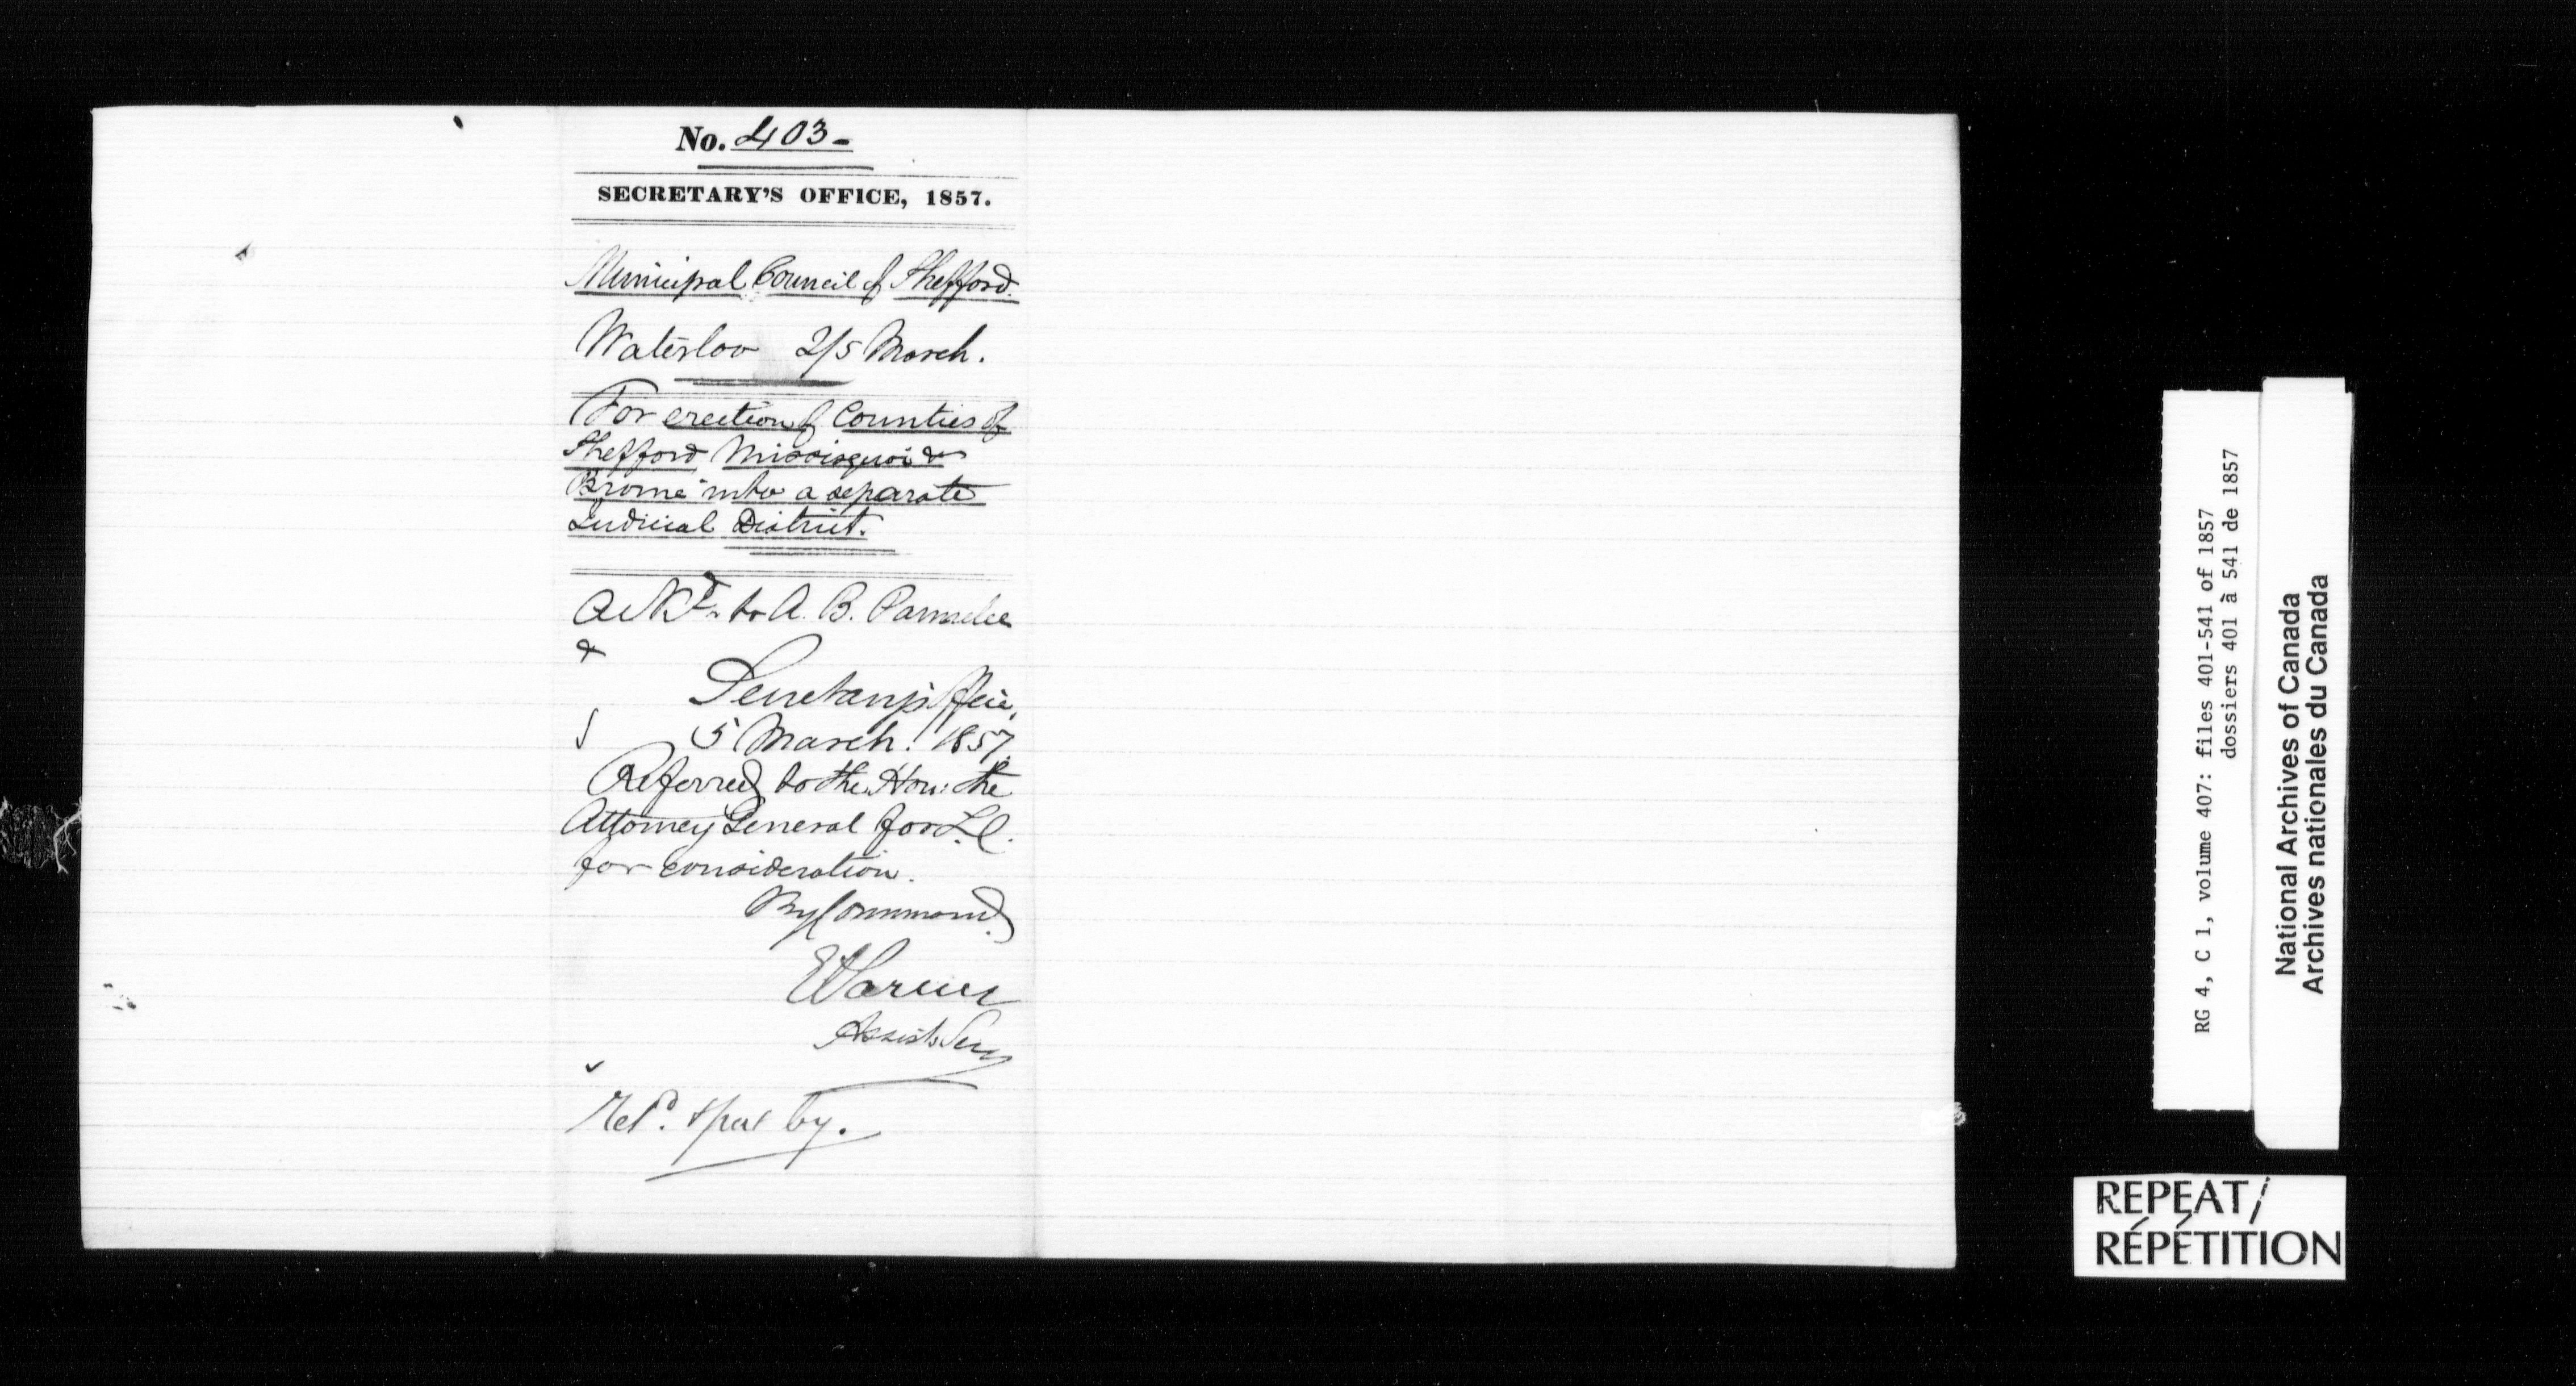 No. 403-
SECRETARY'S OFFICE, 1857.
Municipal Council of Shefford.
Waterloo 2/5 March.
For erection of Counties of
Shefford Missisquoi &
Brome into a separate
Judicial District.
Ackd. to A. B. Parmelee
&
Secretary's Office,
5 March. 1857.
Referred to the Hon: the
Attorney General for L.C.
for consideration.
By Command.
E Parent
Assist. Secy
Recd. & put by.
RG 4, C 1, volume 407: files 401-541 of 1857
dossiers 401 à 541 de 1857
National Archives of Canada
Archives nationales du Canada
REPEAT/
RÉPÉTITION